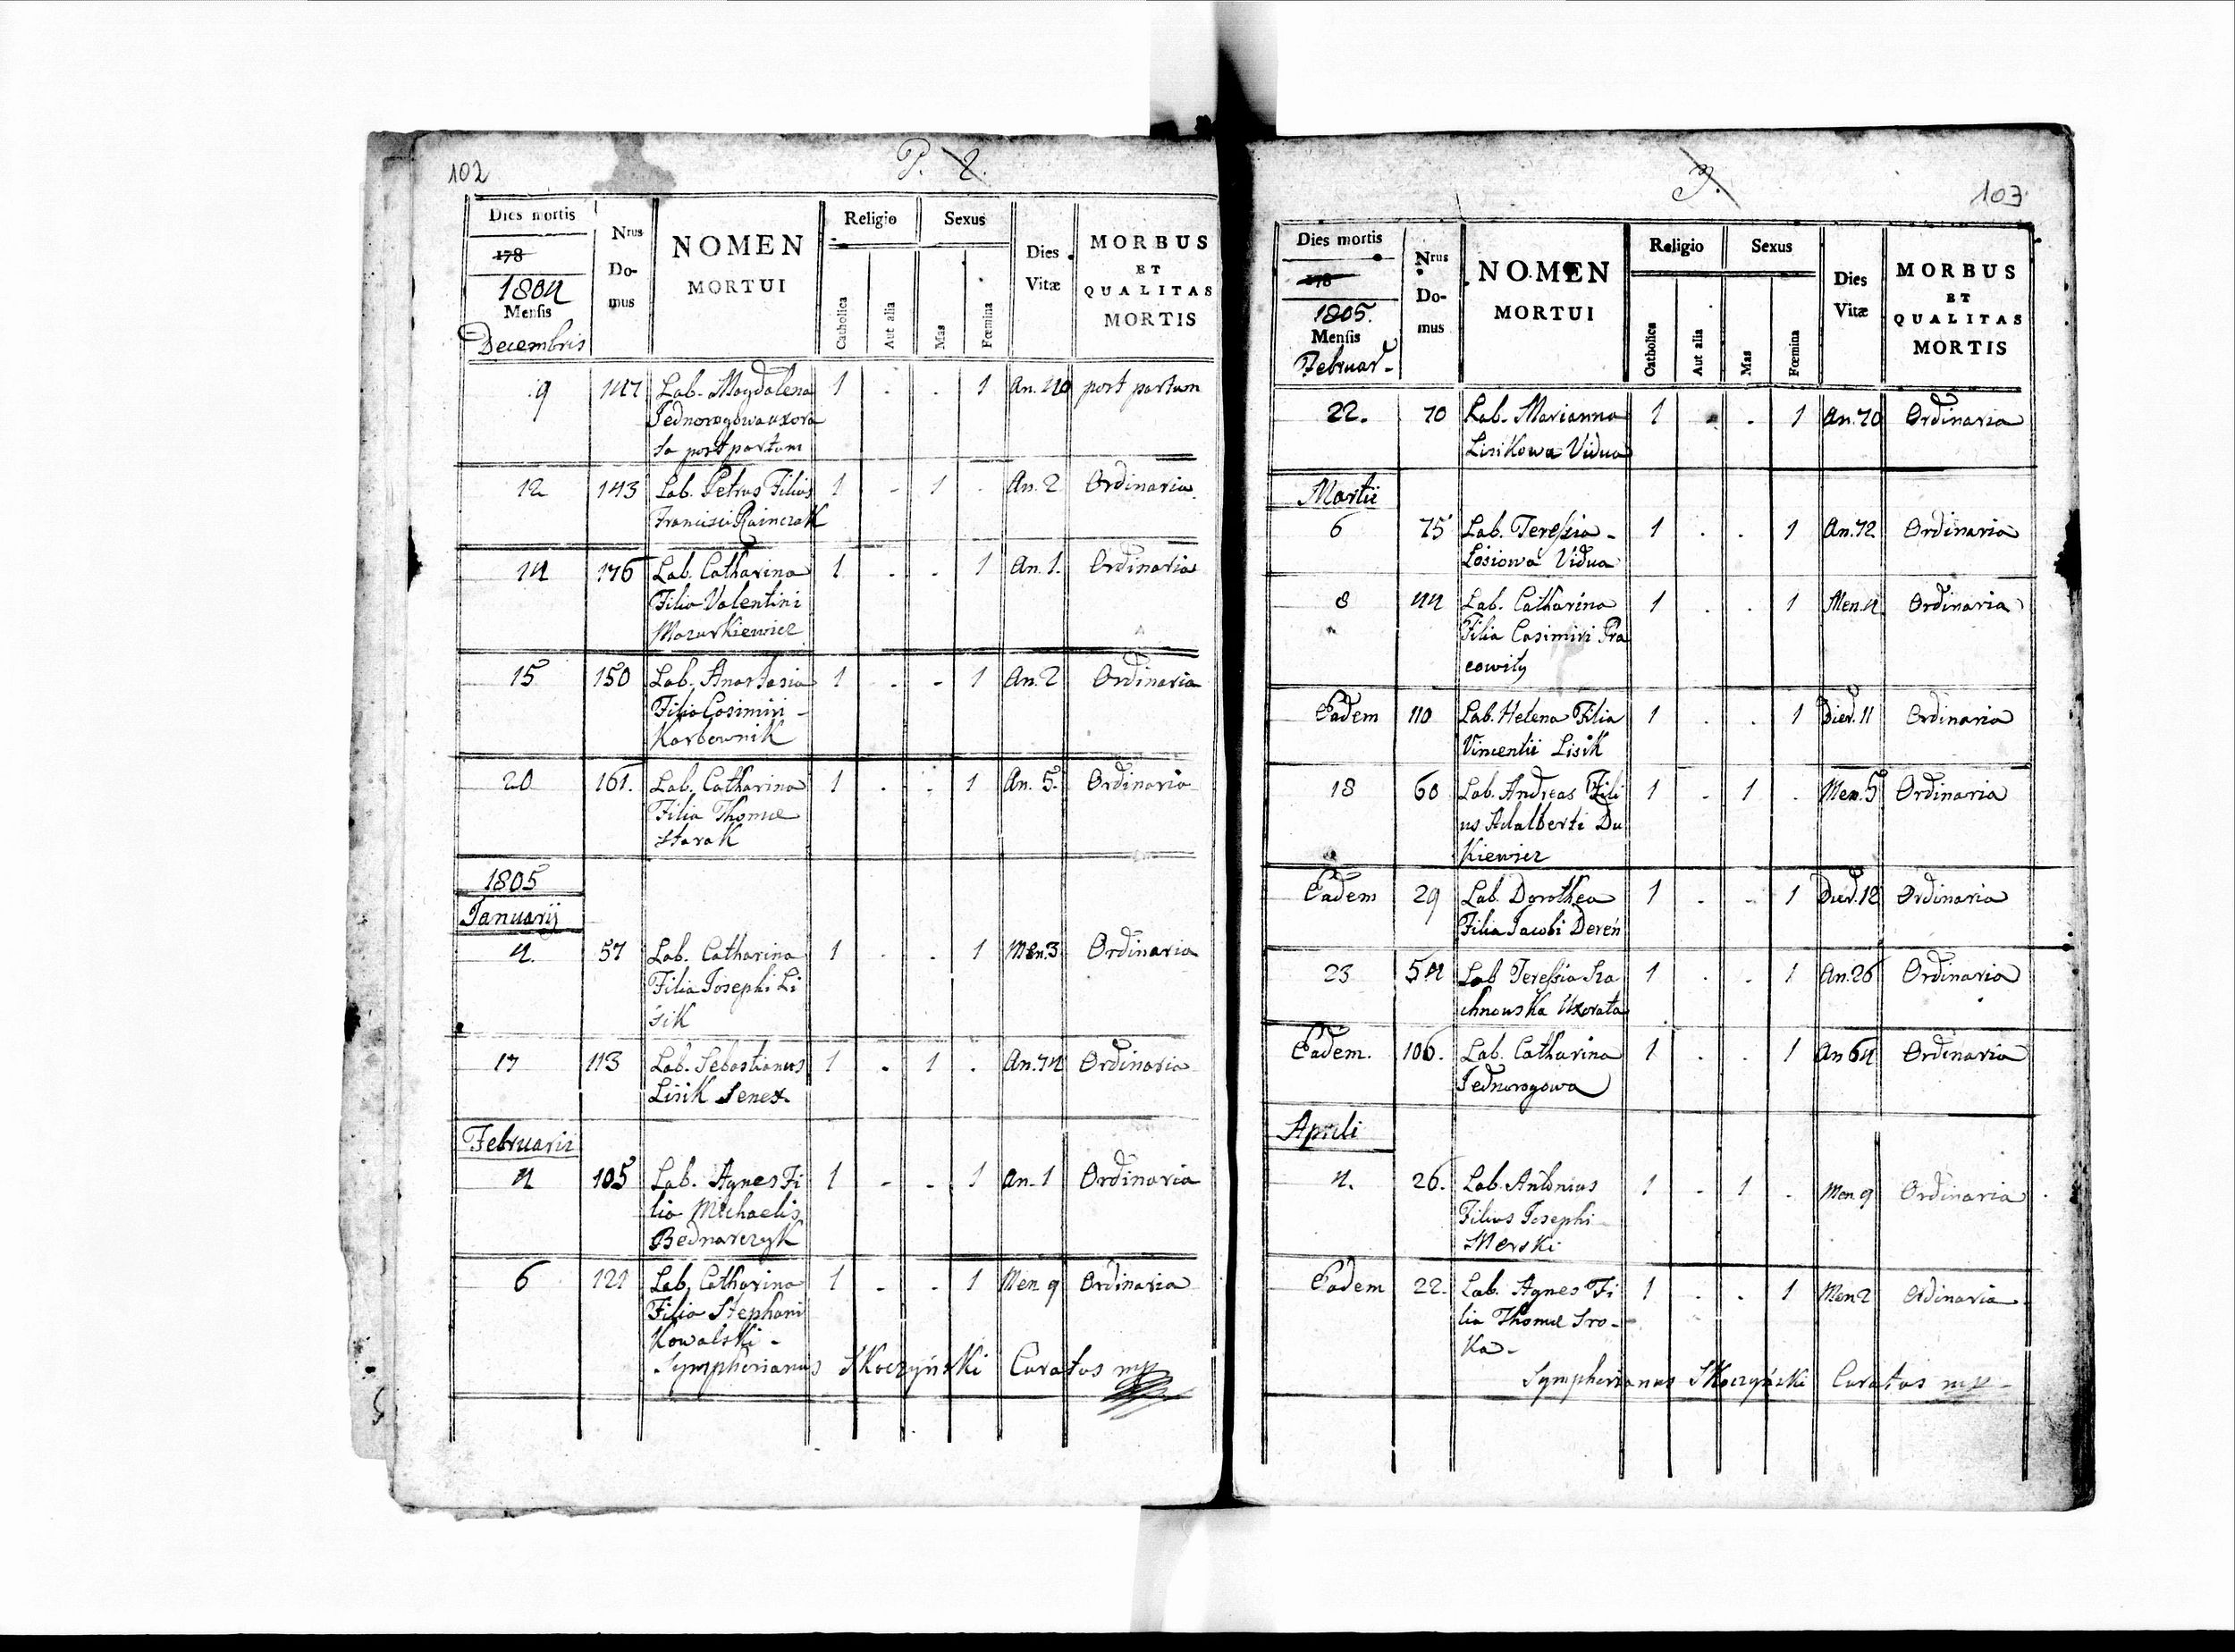 102
P. 2.
Dies mortis
178
1804
Mensis
Decembris
Nrus
Do-
mus
NOMEN
MORTUI
Religio
Catholica
Aut alia
Sexus
Mas
Fœmina
Dies
Vitæ
MORBUS
ET
QUALITAS
MORTIS
9 147 Lab. Magdalena 1 . . 1 An. 40 post partum
Jednorogowa uxora
ta post partum
12 143 Lab. Petrus Filius 1 - 1 . An. 2 Ordinaria
Francisci Rainczak
14 176 Lab. Catharina 1 . . 1 An. 1. Ordinaria
Filia Valentini
Mazurkiewicz
15 150 Lab. Anastasia 1 . - 1 An. 2 Ordinaria
Filia Casimiri -
Karbownik
20 161. Lab. Catharina 1 . . 1 An. 5. Ordinaria
Filia Thomæ
Starak
1805
Januarij
4. 57 Lab. Catharina 1 . . 1 Men. 3 Ordinaria
Filia Josephi Li
sik
17 113 Lab. Sebastianus 1 . 1 . An. 74 Ordinaria
Lisik Senex
Februarii
4 105 Lab. Agnes Fi 1 - . 1 An. 1 Ordinaria
lia Michaelis
Bednarczyk
6 121 Lab. Catharina 1 - . 1 Men 9 Ordinaria
Filia Stephani
Kowalski -
Symphorianus Skoczyński Curatus mp
3.
103
Dies mortis
178
1805.
Mensis
Februar -
Nrus
Do-
mus
NOMEN
MORTUI
Religio
Catholica
Aut alia
Sexus
Mas
Fœmina
Dies
Vitæ
MORBUS
ET
QUALITAS
MORTIS
22. 70 Lab. Marianna 1 . . 1 An. 70 Ordinaria
Lisikowa Vidua
Martii
6 75 Lab. Teressia - 1 . . 1 An. 72 Ordinaria
Łosiowa Vidua
8 44 Lab. Catharina 1 . . 1 Men. 4 Ordinaria
Filia Casimiri Pra
cowity
Eadem 110 Lab. Helena Filia 1 . . 1 Dier. 11 Ordinaria
Vincentii Lisik
18 60 Lab. Andreas Fili 1 . 1 . Men. 5 Ordinaria
us Adalberti Du
kiewicz
Eadem 29 Lab. Dorothea 1 . - 1 Dier. 12 Ordinaria
Filia Jacobi Dereń
23 54 Lab Teressia Sta 1 . . 1 An. 26 Ordinaria
chnowska Uxorata
Eadem. 106. Lab. Catharina 1 . . 1 An 64 Ordinaria
Jednorogowa
Aprili
4. 26. Lab. Antonius 1 - 1 . Men 9 Ordinaria
Filius Josephi
Merski
Eadem 22. Lab. Agnes Fi 1 . . 1 Men 2 Ordinaria
lia Thomæ Sro-
ka -
Symphorianus Skoczyński Curatus mp -